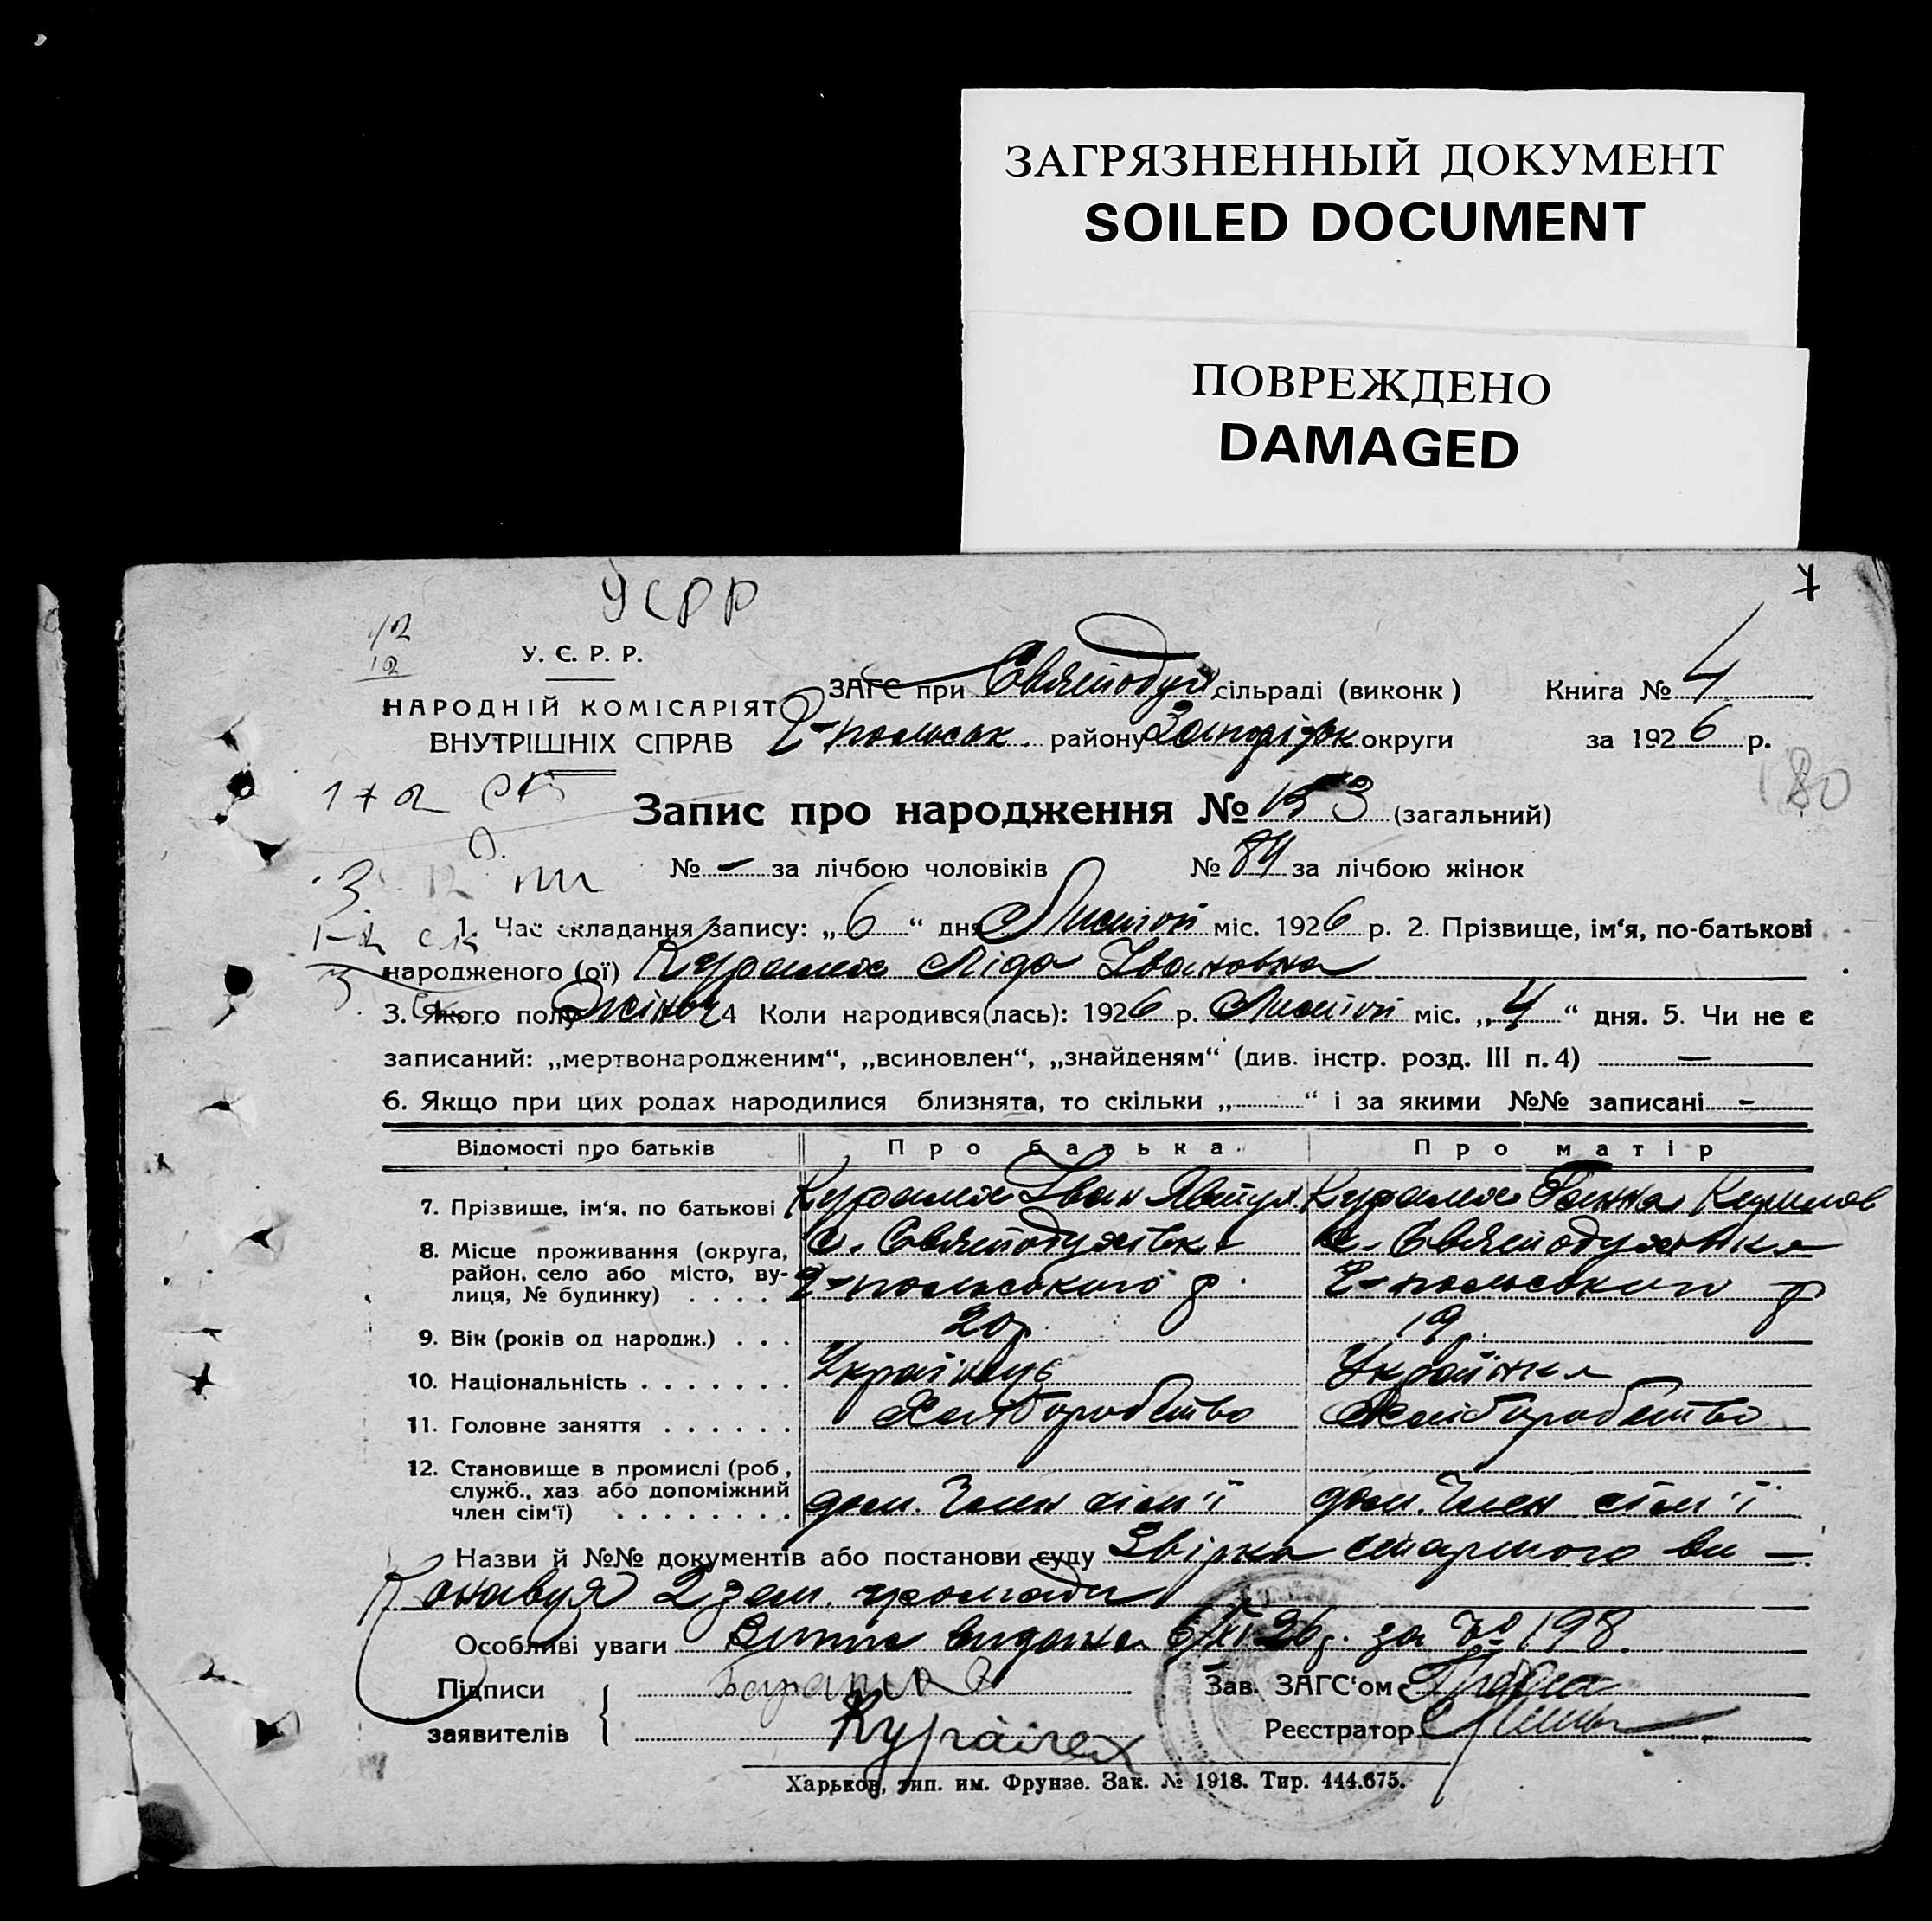 ЗАГРЯЗНЕННЫЙ ДОКУМЕНТ
SOILED DOCUMENT
ПОВРЕЖДЕНО
DAMAGED
7
УСРР
У. С. Р. Р.
НАРОДНІЙ КОМІСАРІЯТ
ВНУТРІШНІХ СПРАВ
ЗАГС при Святодух сільраді (виконк) Книга № 4
польськ. району Запоріжк округи за 1926 р.
180
Запис про народження № 153 (загальний)
№ - за лічбою чоловіків № 84 за лічбою жінок
1. Час складання запису: „6“ дня Листоп міс. 1926 р. 2. Прізвище, ім‘я, по-батькові
народженого (ої) Курамех Ліда Івановна
3. Якого полу жіноч 4 Коли народився(лась): 1926 р. Листоп міс. „4“ дня. 5. Чи не є
записаний: „мертвонародженим“, „всиновлен“, „знайденям“ (див. інстр. розд. III п. 4) —
6. Якщо при цих родах народилися близнята, то скільки „ “ і за якими №№ записані -
Відомості про батьків Про батька Про матір
7. Прізвище, ім‘я, по батькові Іван Ганна
8. Місце проживання (округа, с. Святодухівка с. Святодухівка
район, село або місто, ву-
лиця, № будинку) . . . . польського р. польського р
9. Вік (років од народж.) . . . 20р. 19р.
10. Національність . . . . . . . Українець Українка
11. Головне заняття . . . . . . Хліборобство Хліборобство
12. Становище в промислі (роб,
служб., хаз або допоміжний
член сім‘ї) . . . . . . . . доп. член сім'ї доп. член сім'ї
Назви й №№ документів або постанови суду Звірка старшого ви-
конавця 2 зем. громади
Особливі уваги Випис видана 6/XI 26р. за № 198.
Підписи
заявителів
Зав. ЗАГС‘ом
Реєстратор
Харьков, тип. им. Фрунзе. Зак. № 1918. Тир. 444.675.